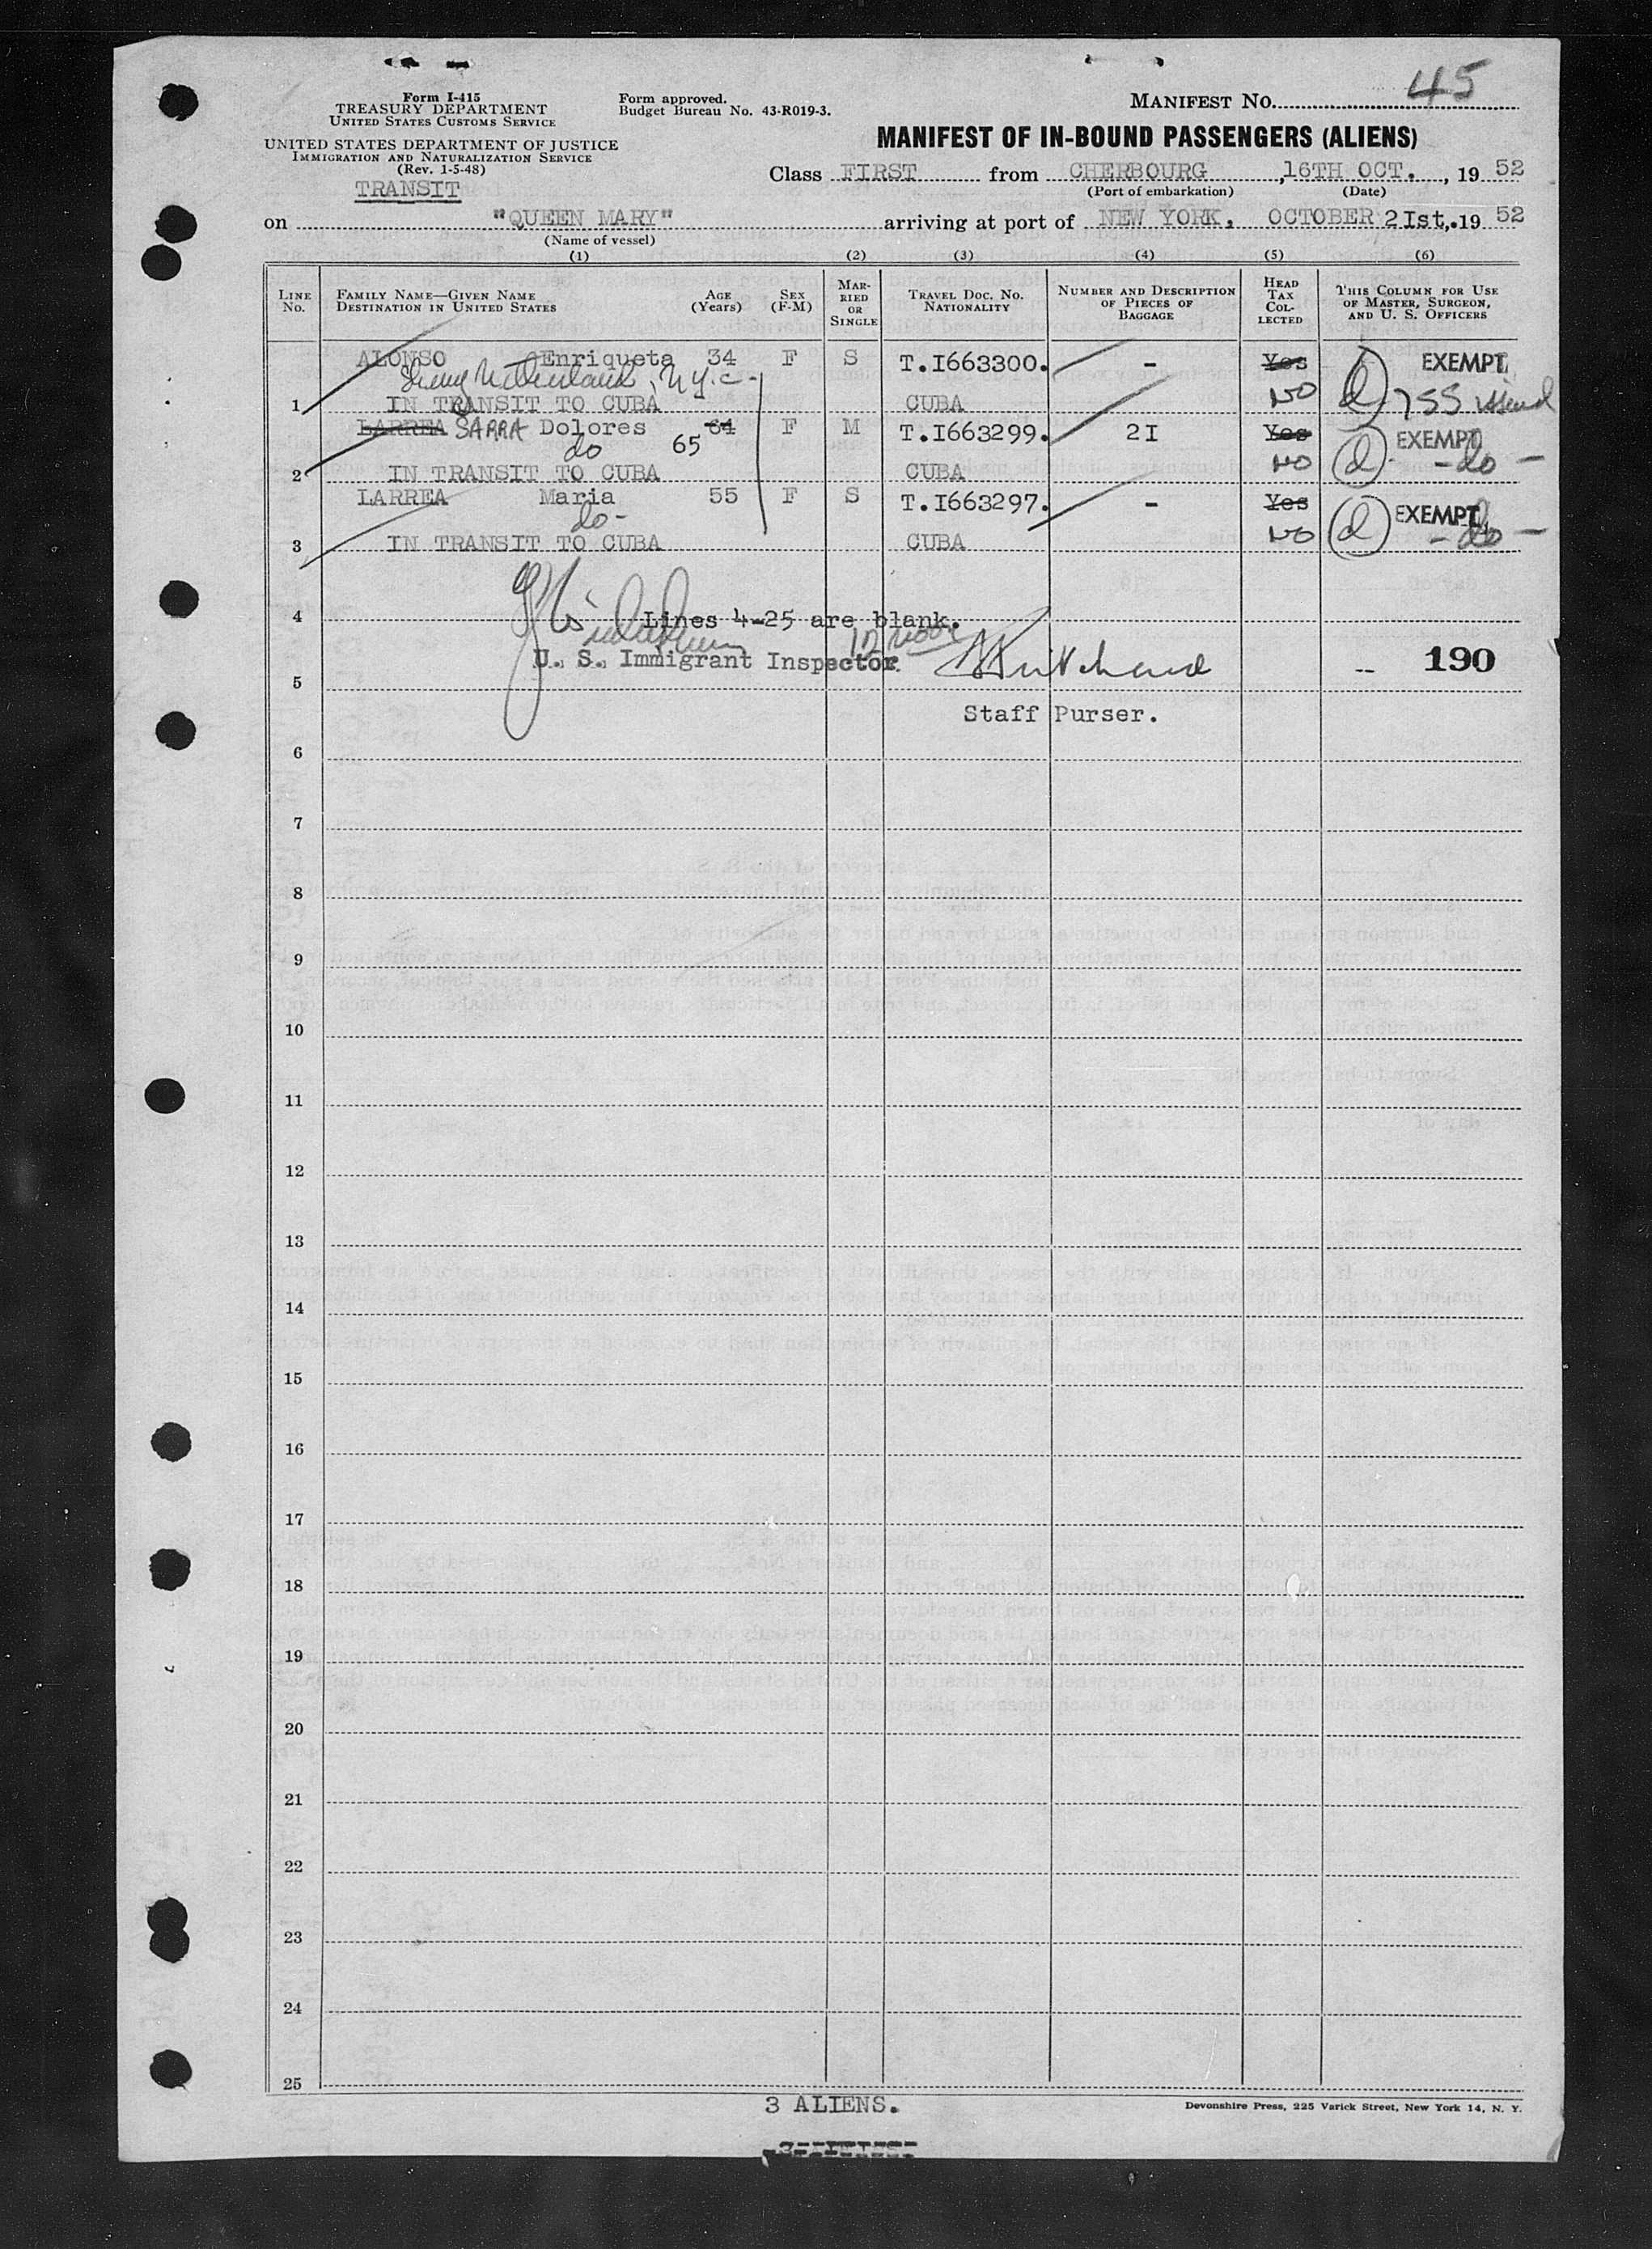 45
Form I-415
TREASURY DEPARTMENT
UNITED STATES CUSTOMS SERVICE
Form approved.
Budget Bureau No. 43-R019-3.
MANIFEST NO.
UNITED STATES DEPARTMENT OF JUSTICE
IMMIGRATION AND NATURALIZATION SERVICE
(Rev. 1-5-48)
TRANSIT
MANIFEST OF IN-BOUND PASSENGERS (ALIENS)
Class FIRST from CHERBOURG, 16TH OCT., 19 52
(Port of embarkation) (Date)
on "QUEEN MARY" arriving at port of NEW YORK, OCTOBER 2Ist, 19 52
(Name of vessel)
(1) (2) (3) (4) (5) (6)
LINE NO.
FAMILY NAME—GIVEN NAME
DESTINATION IN UNITED STATES
AGE (Years)
SEX (F-M)
MARRIED OR SINGLE
TRAVEL DOC. NO.
NATIONALITY
NUMBER AND DESCRIPTION OF PIECES OF BAGGAGE
HEAD TAX COLLECTED
THIS COLUMN FOR USE OF MASTER, SURGEON, AND U. S. OFFICERS
ALONSO Enriqueta 34 F S T.I663300. - Yes EXEMPT
Sherry Netherlands, N.Y.C.
1 IN TRANSIT TO CUBA CUBA NO d 755 issued
LARREA SARRA Dolores 64 F M T.I663299. 2I Yes EXEMPT
do 65
2 IN TRANSIT TO CUBA CUBA NO d - do -
LARREA Maria 55 F S T.I663297. - Yes EXEMPT
do -
3 IN TRANSIT TO CUBA CUBA NO d - do -
4 Lines 4-25 are blank.
U. S. Immigrant Inspector
-- 190
5
Staff Purser.
6
7
8
9
10
11
12
13
14
15
16
17
18
19
20
21
22
23
24
25
3 ALIENS.
Devonshire Press, 225 Varick Street, New York 14, N. Y.